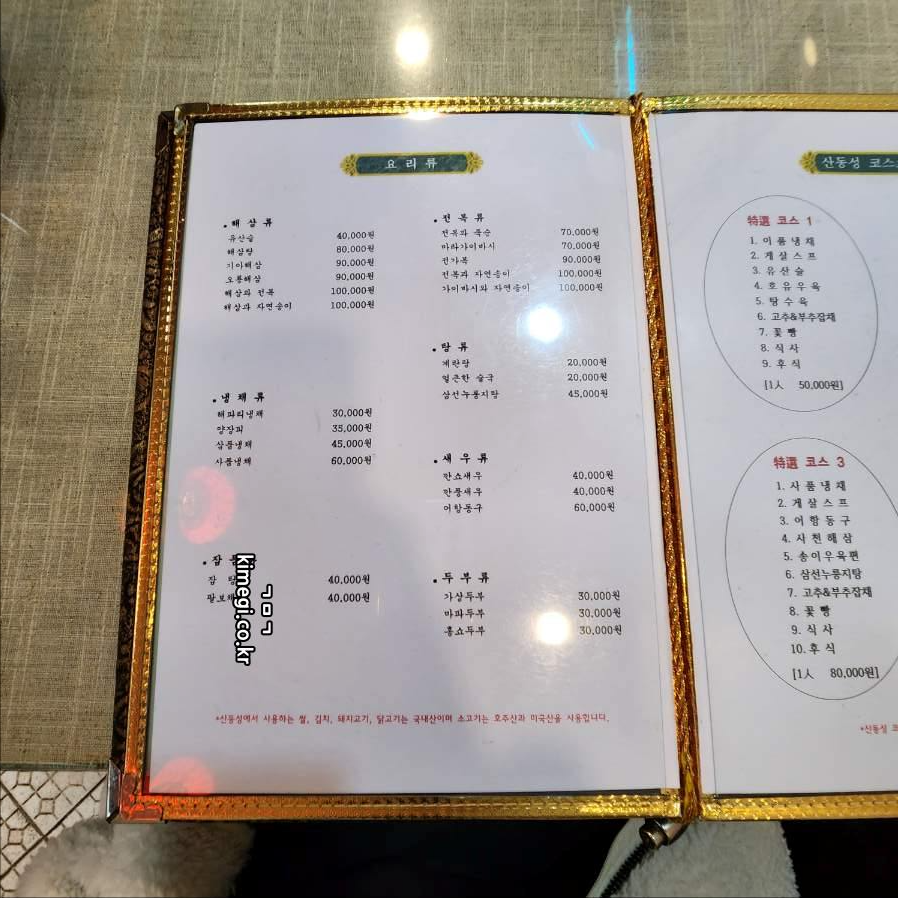 요 리 류
• 해 삼 류
유산슬 40,000원
해삼탕 80,000원
기아해삼 90,000원
오룡해삼 90,000원
해삼과 전복 100,000원
해삼과 자연송이 100,000원
• 냉 채 류
해파리냉채 30,000원
양장피 35,000원
삼품냉채 45,000원
사품냉채 60,000원
• 잡 품
잡 탕 40,000원
팔보채 40,000원
• 전 복 류
전복과 죽순 70,000원
마라가이바시 70,000원
전가복 90,000원
전복과 자연송이 100,000원
가이바시와 자연송이 100,000원
• 탕 류
계란탕 20,000원
얼큰한 술국 20,000원
삼선누룽지탕 45,000원
• 새 우 류
깐쇼새우 40,000원
깐풍새우 40,000원
어향동구 60,000원
• 두 부 류
가상두부 30,000원
마파두부 30,000원
홍쇼두부 30,000원
*산동성에서 사용하는 쌀, 김치, 돼지고기, 닭고기는 국내산이며 소고기는 호주산과 미국산을 사용합니다.
산동성 코스
特選 코스 1
1. 이 품 냉 채
2. 게 살 스 프
3. 유 산 슬
4. 호 유 우 육
5. 탕 수 육
6. 고추&부추잡채
7. 꽃 빵
8. 식 사
9. 후 식
[1人 50,000원]
特選 코스 3
1. 사 품 냉 채
2. 게 살 스 프
3. 어 향 동 구
4. 사 천 해 삼
5. 송이우육편
6. 삼선누룽지탕
7. 고추&부추잡채
8. 꽃 빵
9. 식 사
10. 후 식
[1人 80,000원]
*산동성 코
ㄱㅁㄱ
kimegi.co.kr